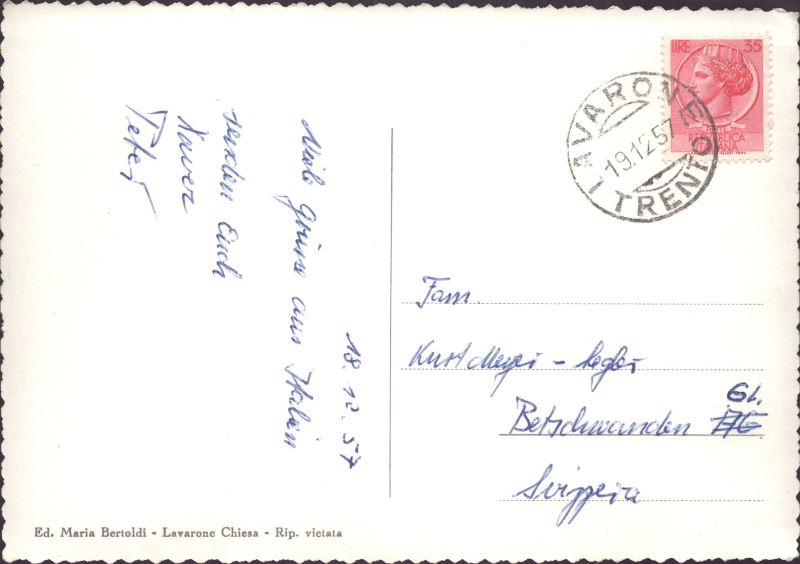 18.12.57
Viele Grüsse aus Italien
senden Euch
Xaver
Peter
LIRE 35
REPUBBLICA
LAVARONE
19.12.57
TRENTO
Fam.
Kurt Meyer -
Betschwanden GL.
Svizzera
Ed. Maria Bertoldi - Lavarone Chiesa - Rip. vietata